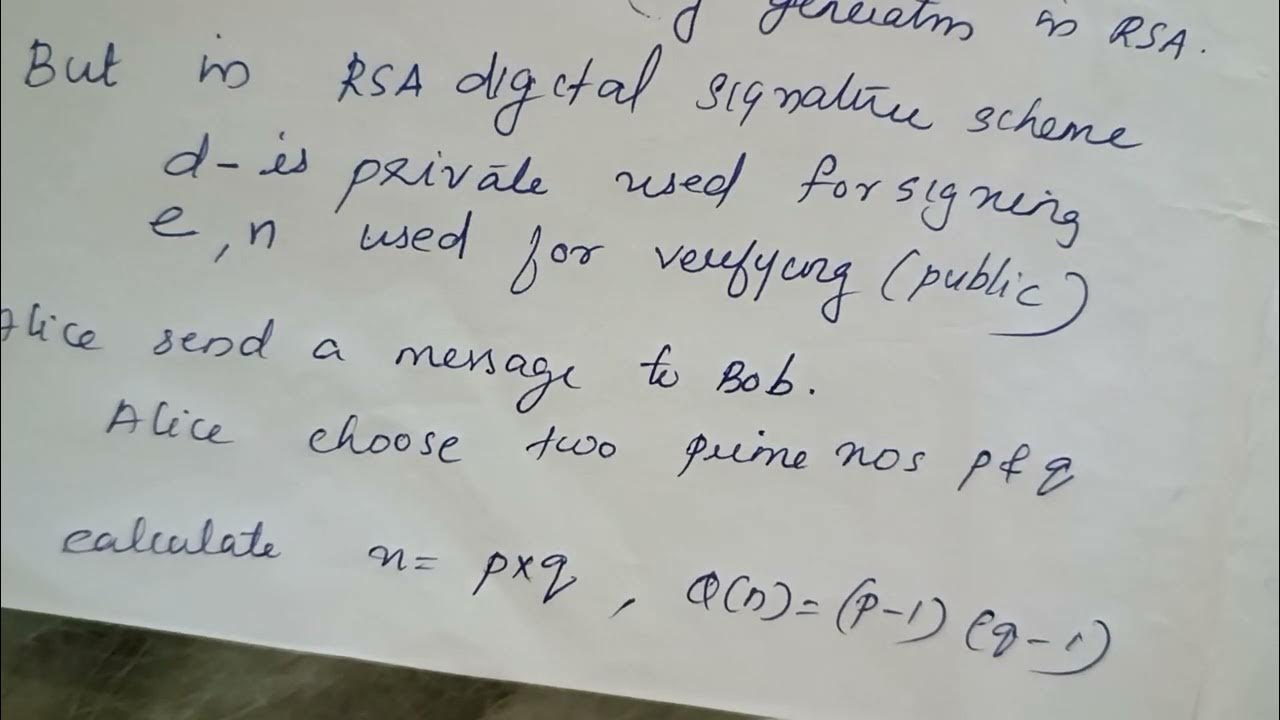 generation in RSA.
But in RSA digital signature scheme
d- is private used for signing
e, n used for verifying (public)
Alice send a message to Bob.
Alice choose two prime nos p & q
calculate n= p×q , Φ(n)= (p-1) (q-1)